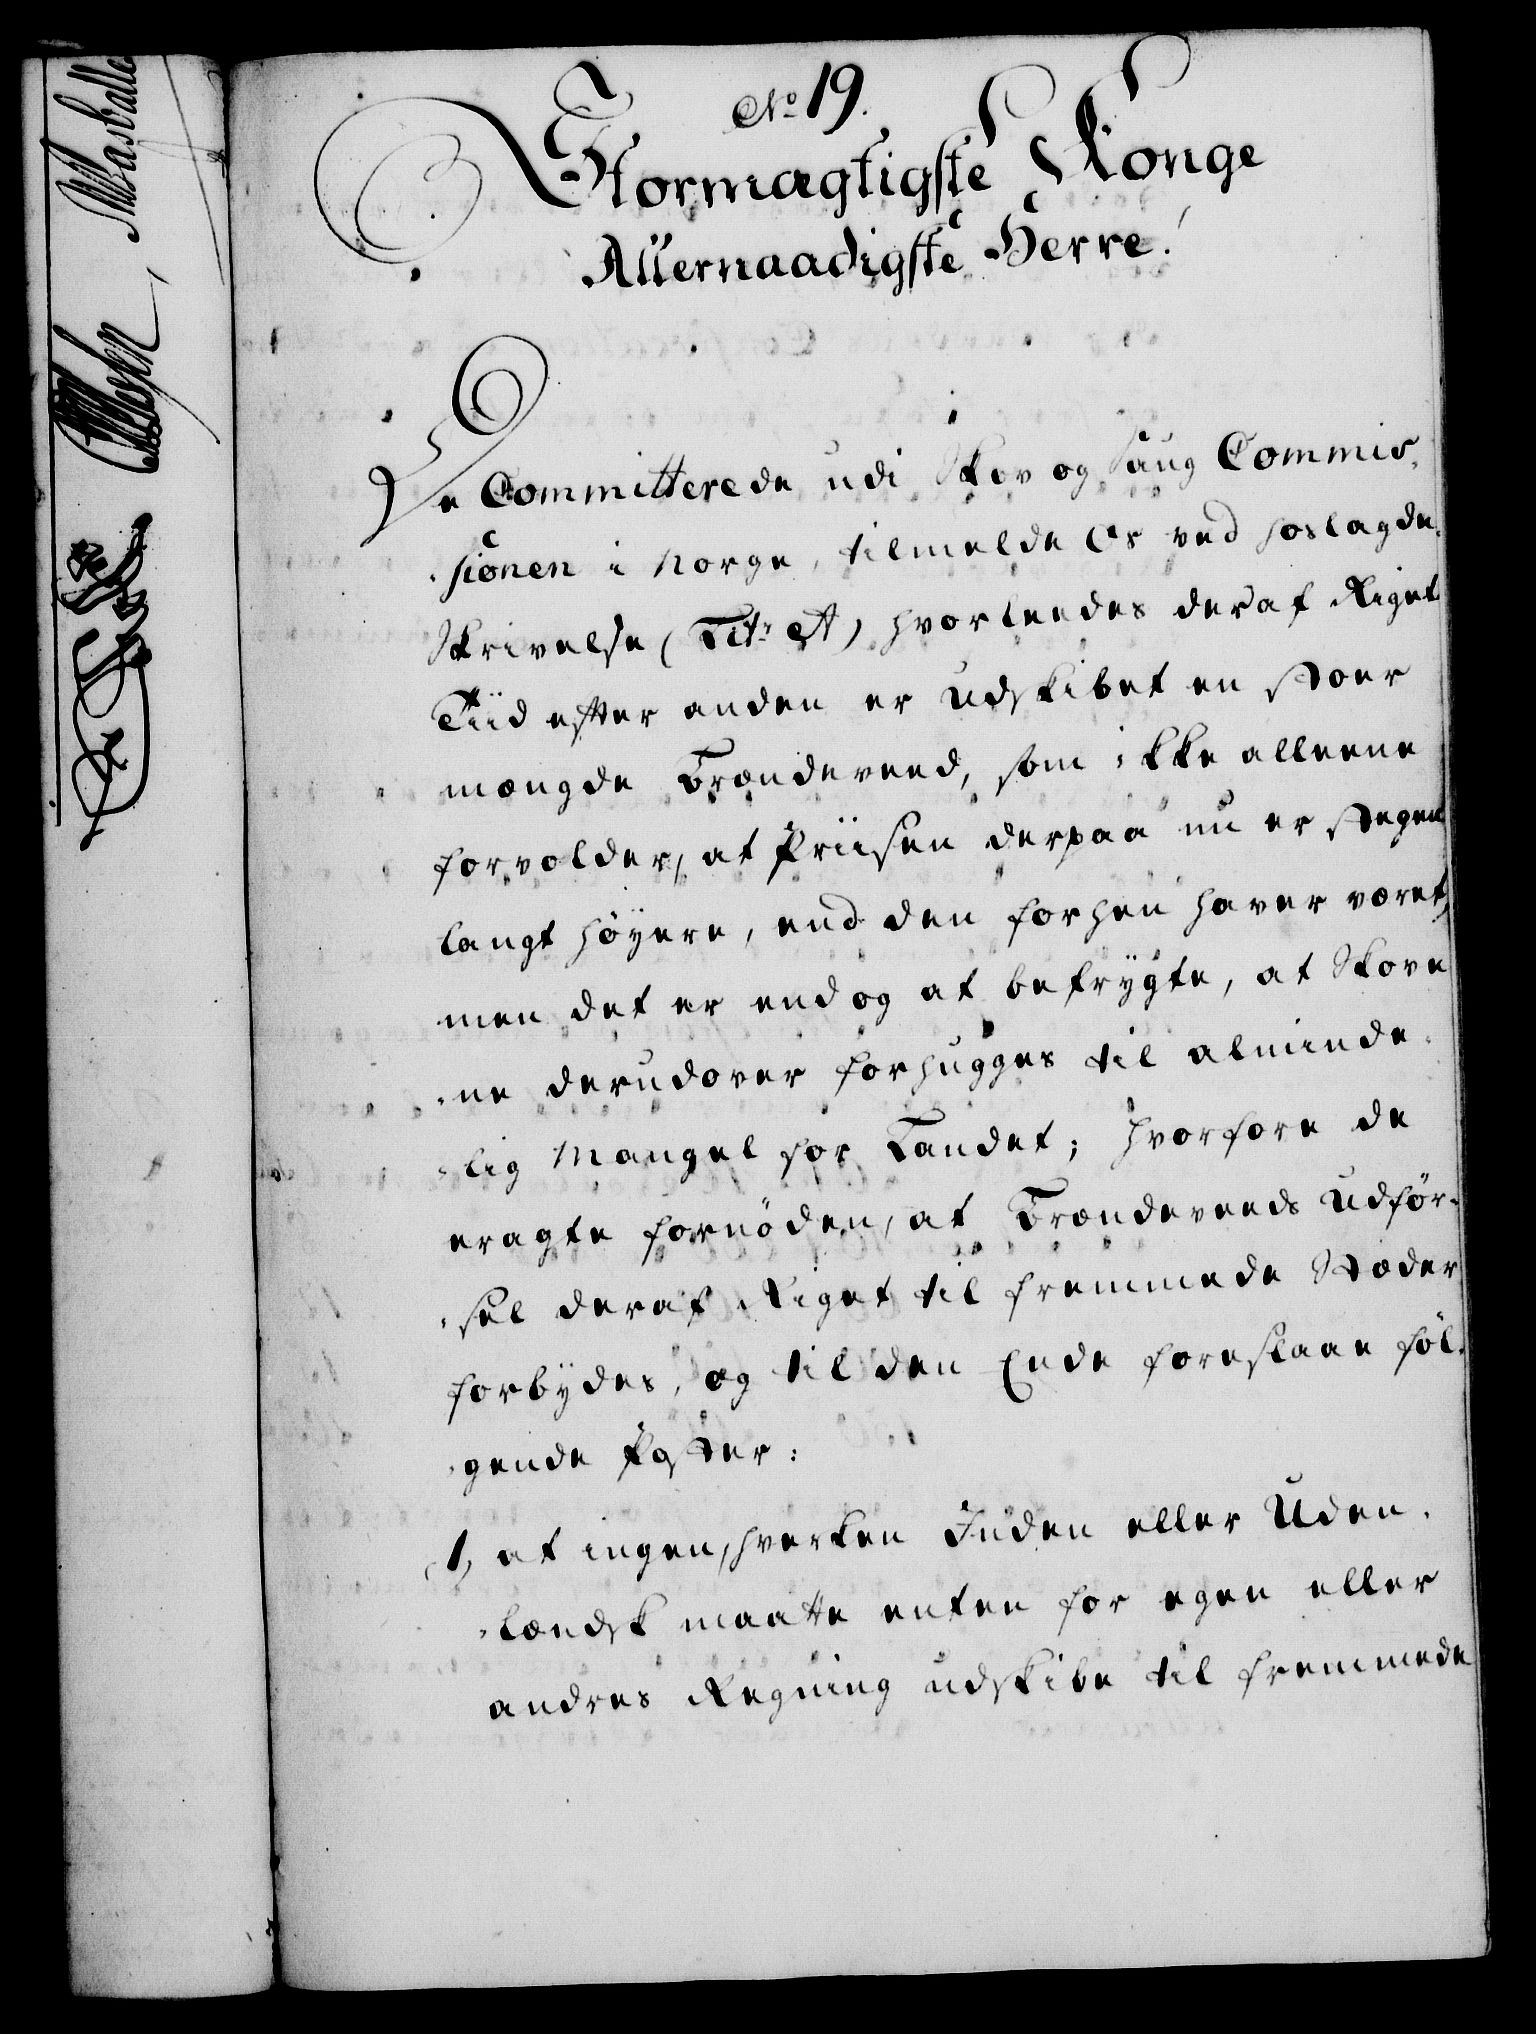 No 19.
Stormægtigste Konge
Allernaadigste Herre!
De Committerede udi Skov og Saug Commis-
-sionen i Norge, tilmelde Os ved hoslagde
Skrivelse (Litr A) hvorleedes der af Riget
Tiid efter anden er udskibet en stoer
mængde Brændeveed, som ikke alleene
forvolder, at Priisen derpaa nu er stegen
langt høyere, end den forhen haver været,
men det er endog at befrygte, at Skove
-ne derudover forhugges til alminde-
-lig Mangel for Landet; hvorfore de
eragte fornøden, at Brændeveeds Udfør-
-sel der af Riget til fremmede Stæder
forbydes, og til den Ende foreslaae føl-
-gende Poster:
1, at ingen, hverken Inden eller Uden-
-landsk maatte enten for egen eller
andres Regning udskibe til fremmede